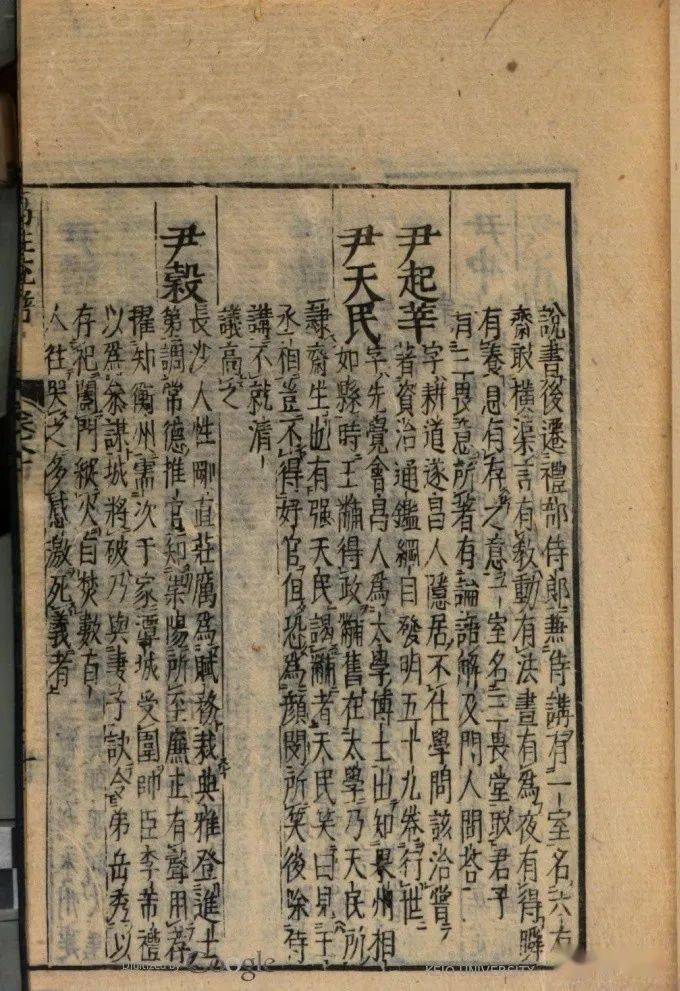 說書後遷禮部侍郎兼侍講有一室名六有
齋取橫渠言有教動有法晝有為夜有得瞬
有養息有存之意一室名三畏堂取君子
有三畏意所著有論語解及門人問答
尹起莘
字耕道遂昌人隱居不仕學問該洽嘗
著資治通鑑綱目發明五十九卷行世
尹天民
字先覺會昌人為太學博士出知果州相
如縣時王黼得政黼舊在太學乃天民所
隸齋生也有强天民謁黼者天民笑曰見王
丞相豈不得好官但恐為顏閔所笑後除待
講不就清
議高之
尹穀
長沙人性剛直莊厲為賦務裁典雅登進士
第調常德推官知崇陽所至廉正有聲用荐
擢知衡州需次于家潭城受圍帥臣李芾禮
以為參謀城將破乃與妻子訣令弟岳秀以
存祀闔門縱火自焚數百
人往哭之多感激死義者
Digitized by Google
KEIO UNIVERSITY